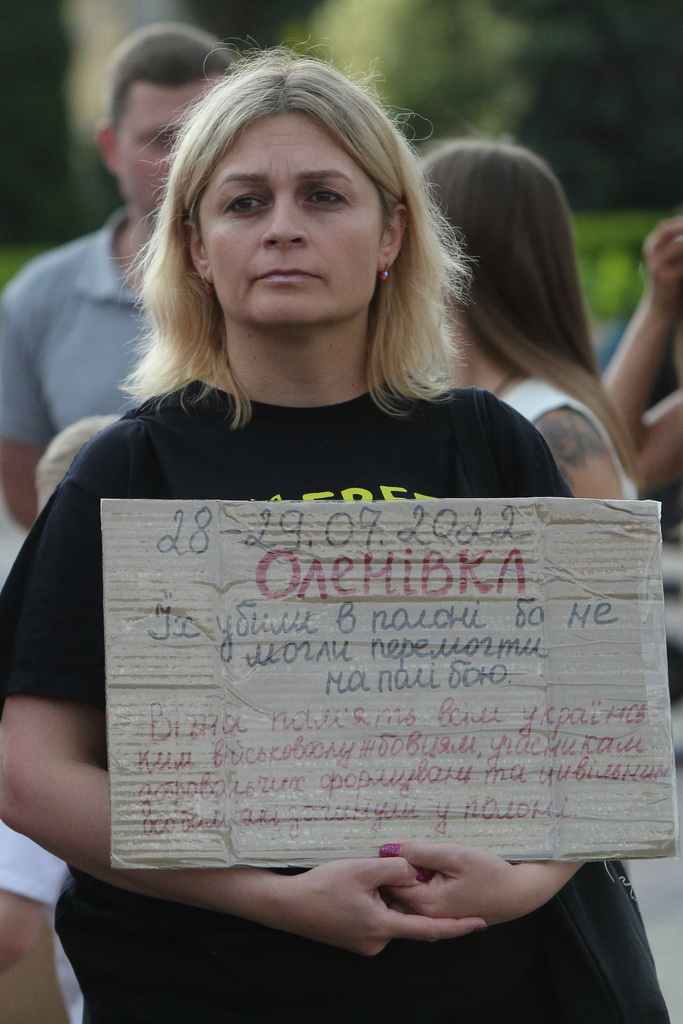 28-29.07.2022
Оленівка
Їх убили в полоні бо не
могли перемогти
на полі бою.
Вічна пам'ять всім українсь-
ким військовослужбовцям, учасникам
добровольчих формувань та цивільним
особам які загинули у полоні.